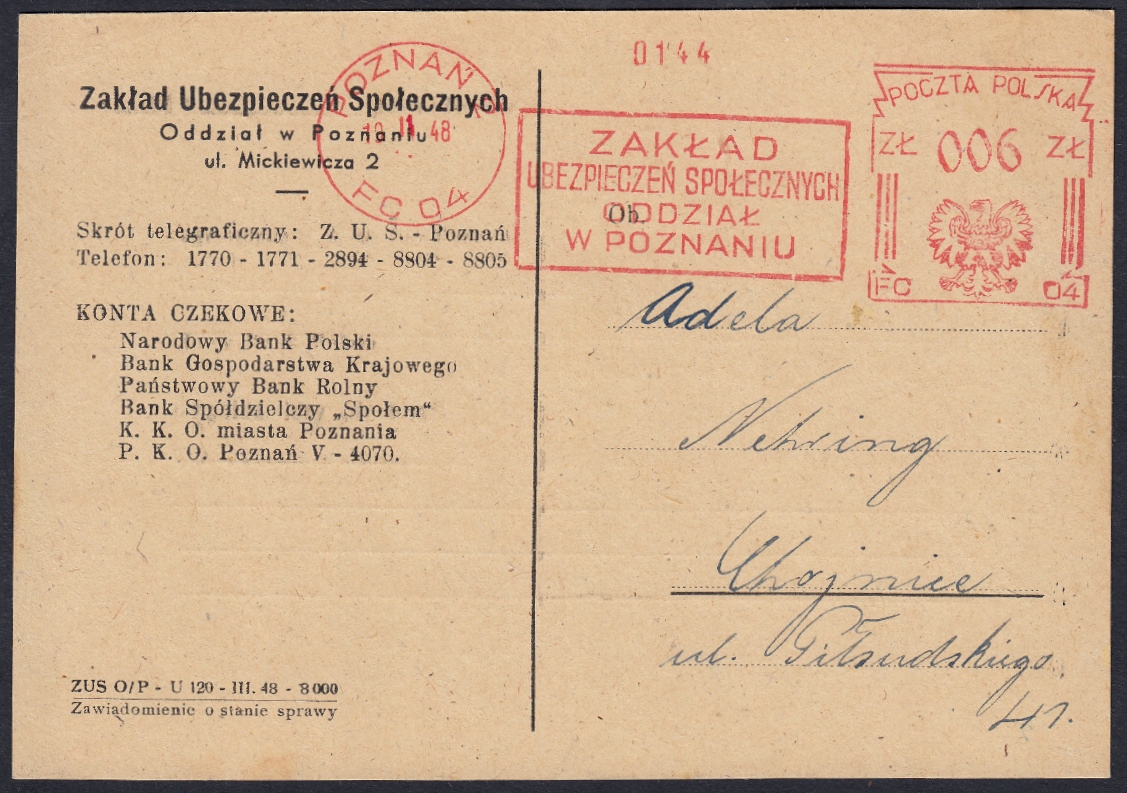 Zakład Ubezpieczeń Społecznych
Oddział w Poznaniu
ul. Mickiewicza 2
Skrót telegraficzny: Z. U. S. - Poznań
Telefon: 1770 - 1771 - 2894 - 8804 - 8805
KONTA CZEKOWE:
Narodowy Bank Polski
Bank Gospodarstwa Krajowego
Państwowy Bank Rolny
Bank Spółdzielczy „Społem“
K. K. O. miasta Poznania
P. K. O. Poznań V - 4070.
ZUS O/P - U 120 - III. 48 - 8000
Zawiadomienie o stanie sprawy
POZNAŃ
II 48
FC 04
0144
ZAKŁAD
UBEZPIECZEŃ SPOŁECZNYCH
ODDZIAŁ
W POZNANIU
POCZTA POLSKA
ZŁ 006 ZŁ
FC 04
Ob.
Adela
Nehring
Chojnice
ul. Piłsudskiego
41.